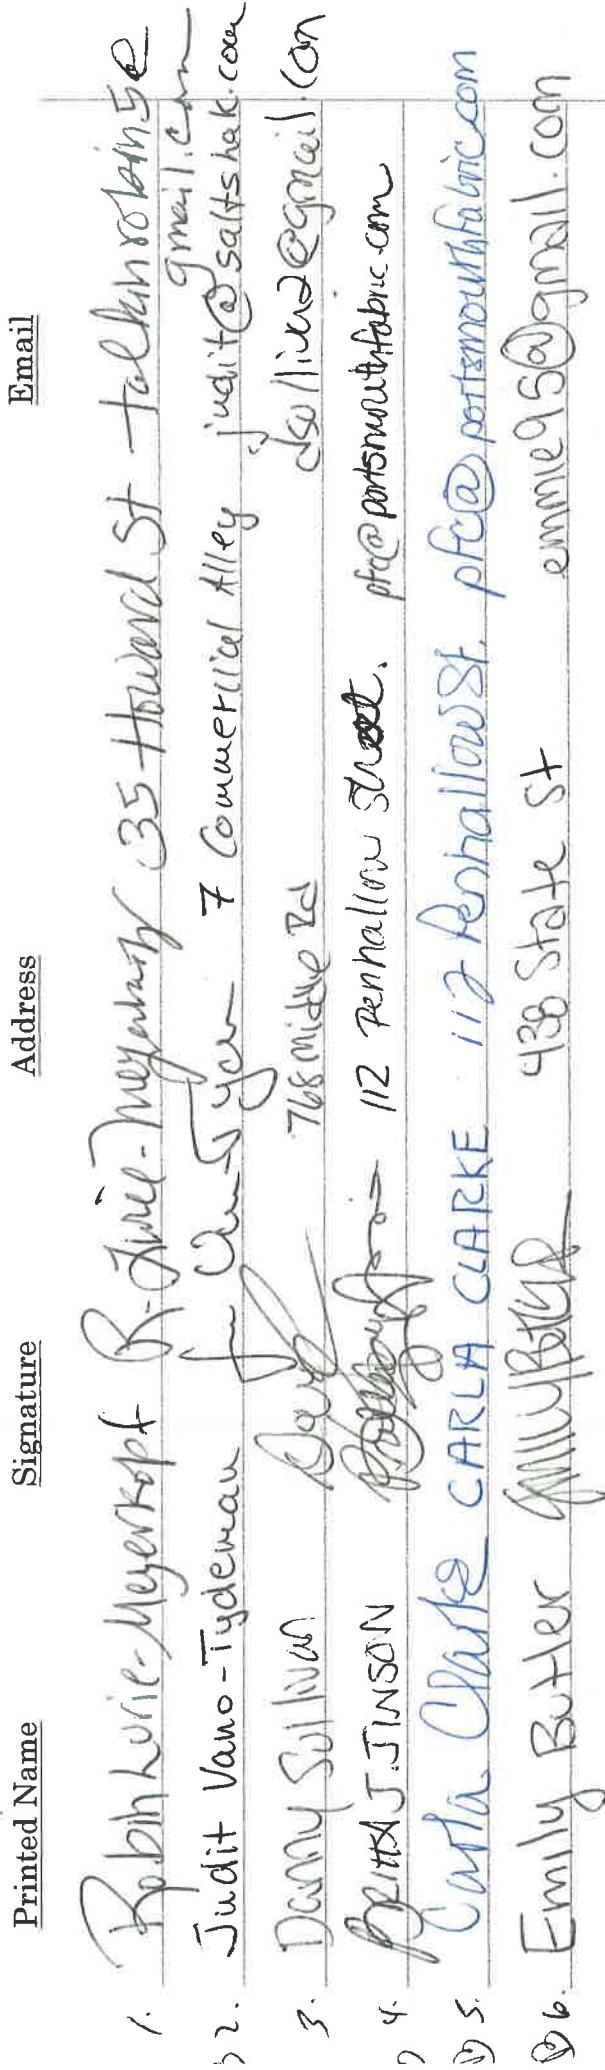 Printed Name Signature Address Email
1. Robin Lurie-Meyerkopf R. Lurie-Meyerkopf 35 Howard St talkinrobin5@
gmail.com
2. Judit Vano-Tydeman 7 Commercial Alley judit@saltshak.com
3. Danny Sullivan 768 Middle Rd dsulliv2@gmail.com
4. J. JINSON 112 Penhallow Street. pfc@portsmouthfabric.com
5. Carla Clarke CARLA CLARKE 112 Penhallow St. pfc@portsmouthfabric.com
6. Emily Butler 438 State St emmie95@gmail.com